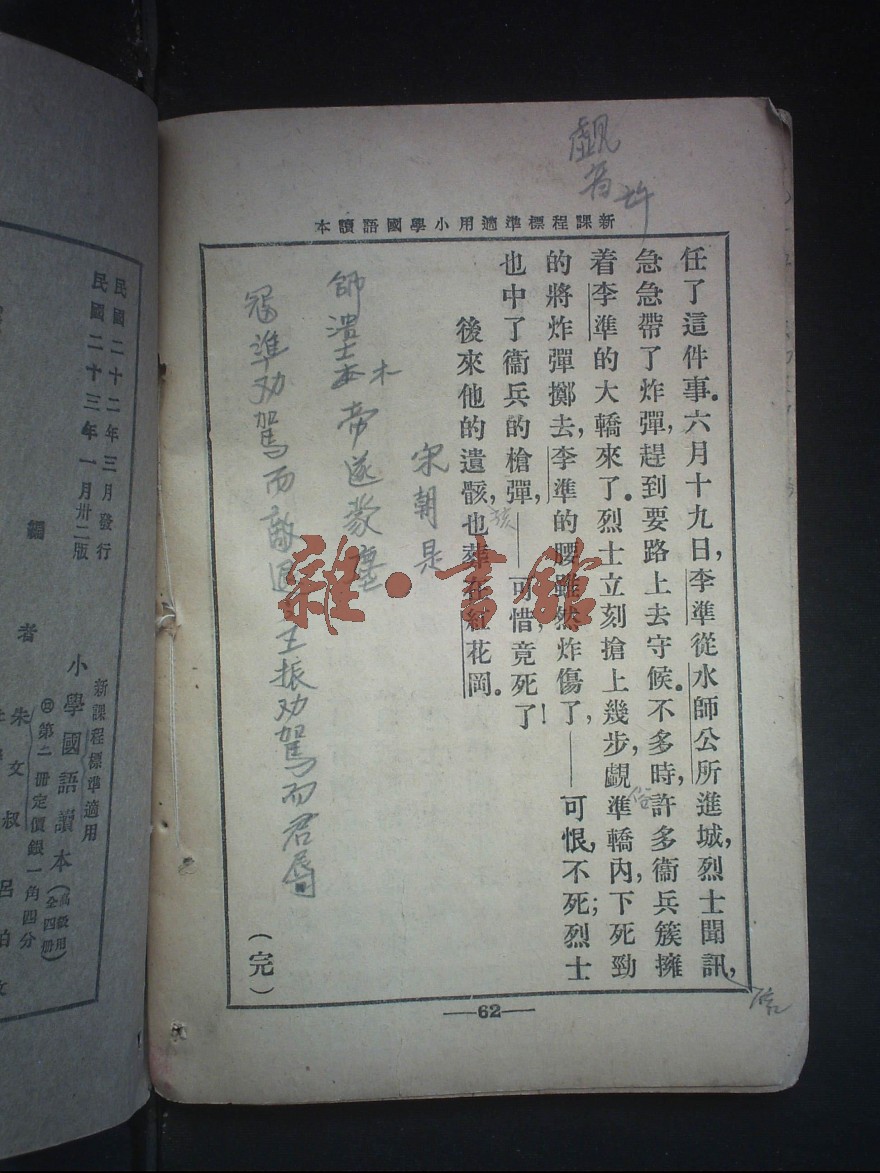 覷
新課程標準適用小學國語讀本
任了這件事。六月十九日,李準從水師公所進城,烈士聞訊,
急急帶了炸彈,趕到要路上去守候。不多時,許多衞兵簇擁
着李準的大轎來了。烈士立刻搶上幾步,覷準轎內,下死勁
的將炸彈擲去,李準的腰雖然炸傷了,——可恨,不死;烈士
也中了衞兵的槍彈,——可惜,竟死了!
後來他的遺骸,也葬在紅花岡。
孩
信
宋朝是
木
師潰土本帝遂蒙塵
寇準劝駕而敵退王振劝駕而君辱
(完)
—62—
雜·書館
民國二十二年三月發行
民國二十三年一月卅二版
編
者
新課程標準適用
小學國語讀本(高級用全四册)
第二冊定價銀一角四分
朱文叔
呂伯攸